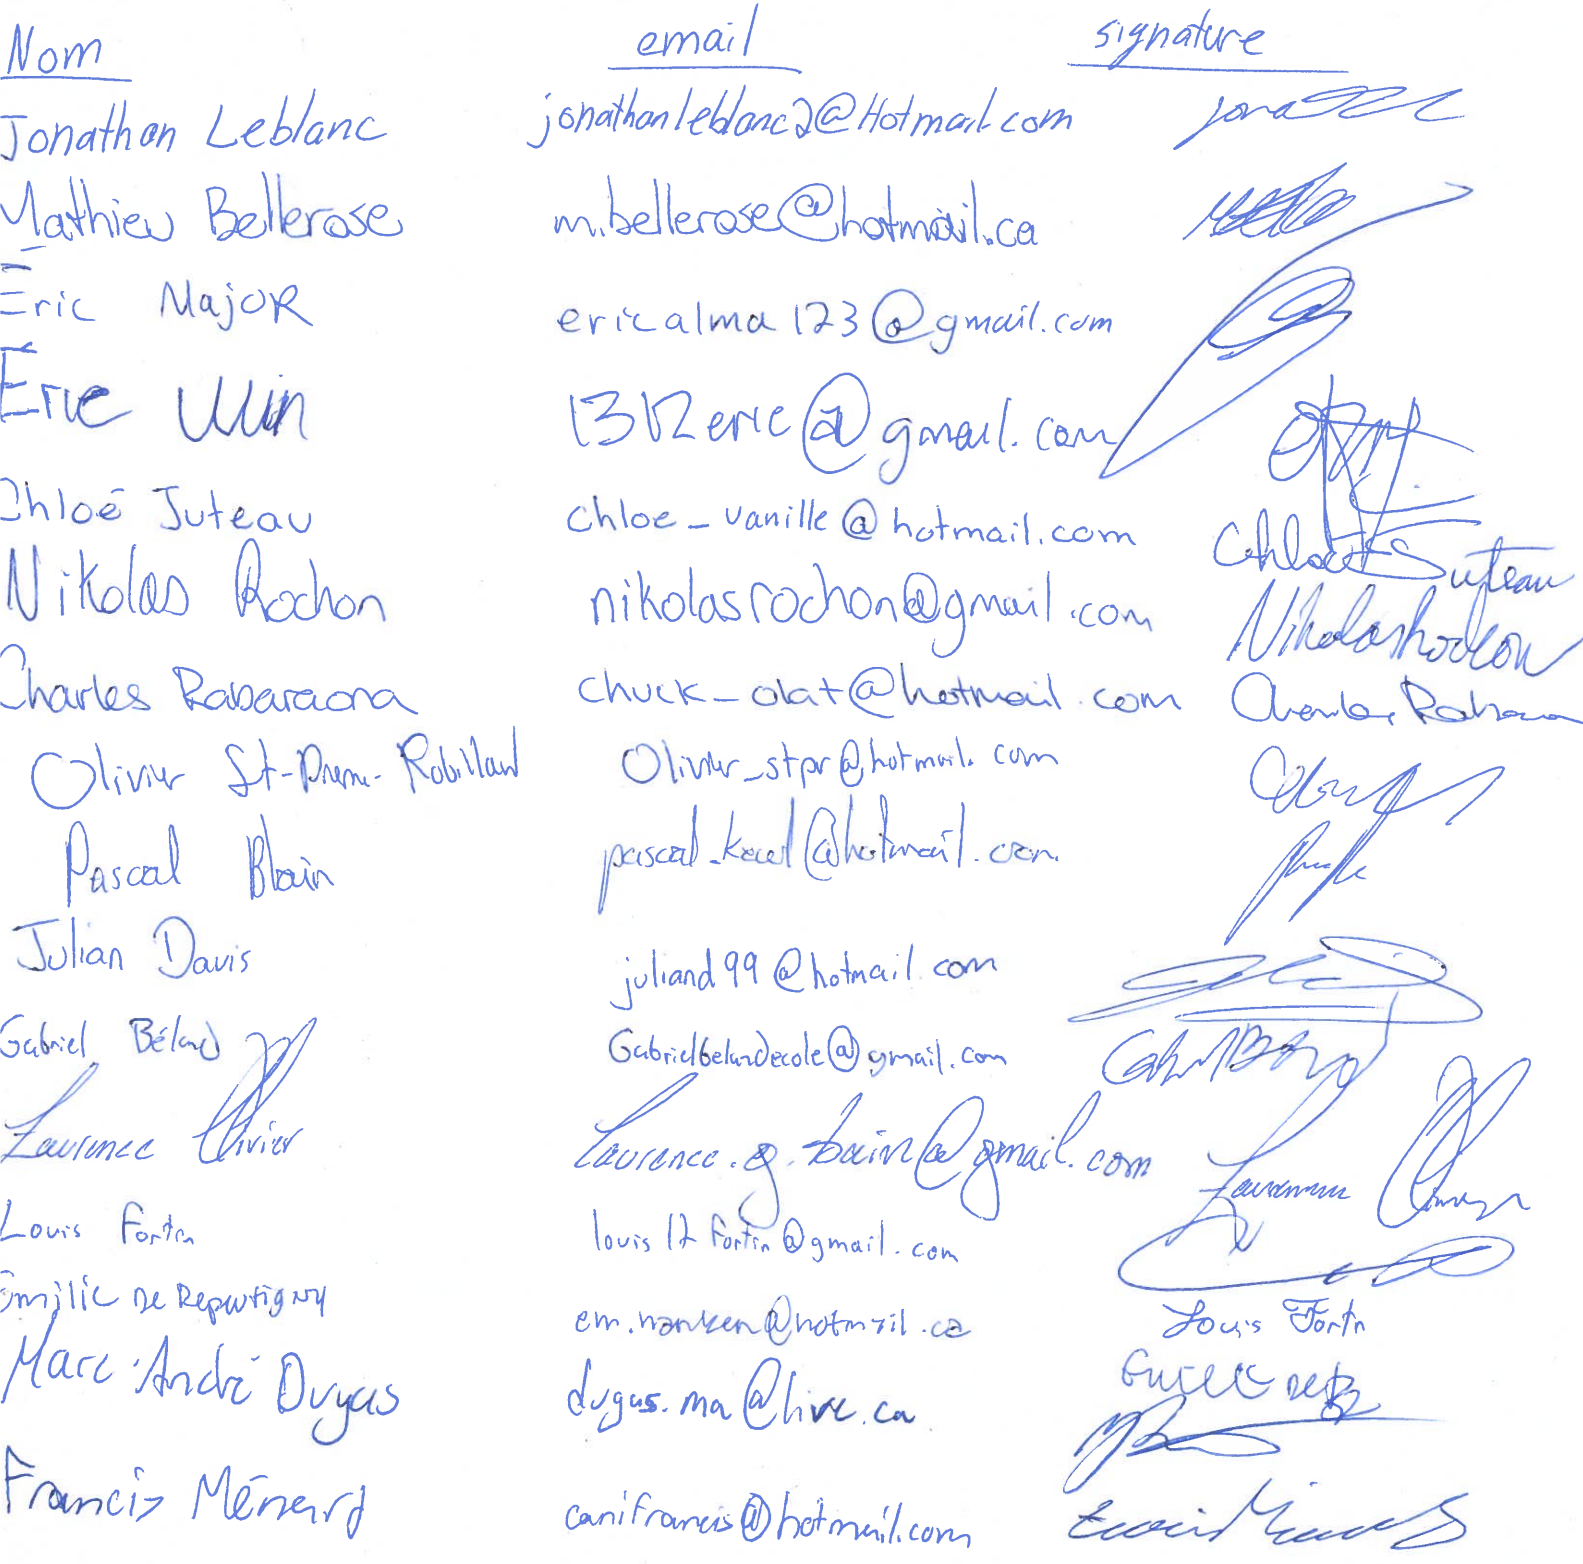 Nom email signature
Jonathan Leblanc jonathanleblanc2@Hotmail.com
Mathieu Bellerose m.bellerose@hotmail.ca
Éric MajoR ericalma123@gmail.com
Éric 1312eric@gmail.com
Chloé Juteau chloe_vanille@hotmail.com Chloé Juteau
Nikolas Rochon nikolasrochon@gmail.com Nikolas Rochon
Charles Rabaraona chuck_olat@hotmail.com
Olivier St-Pierre-Robillard Olivier_stpr@hotmail.com
Pascal Blain
Julian Davis juliand99@hotmail.com
Gabriel Béland Gabrielbelandecole@gmail.com
Laurence Olivier laurence.g.bain@gmail.com
Louis Fortin louis12fortin@gmail.com
Émilie De Repentigny
Louis Fortin
Marc-André Dugas dugas.ma@live.ca
Francis Ménard canifrancis@hotmail.com